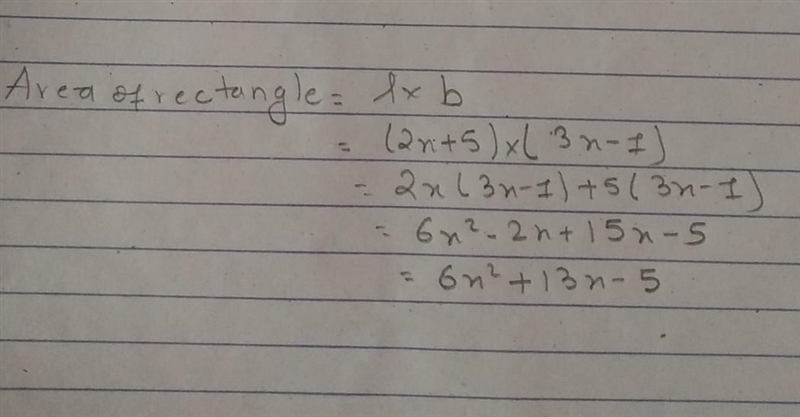 Area of rectangle = l × b
= (2x+5) × (3x-1)
= 2x(3x-1)+5(3x-1)
= 6x²-2x+15x-5
= 6x²+13x-5